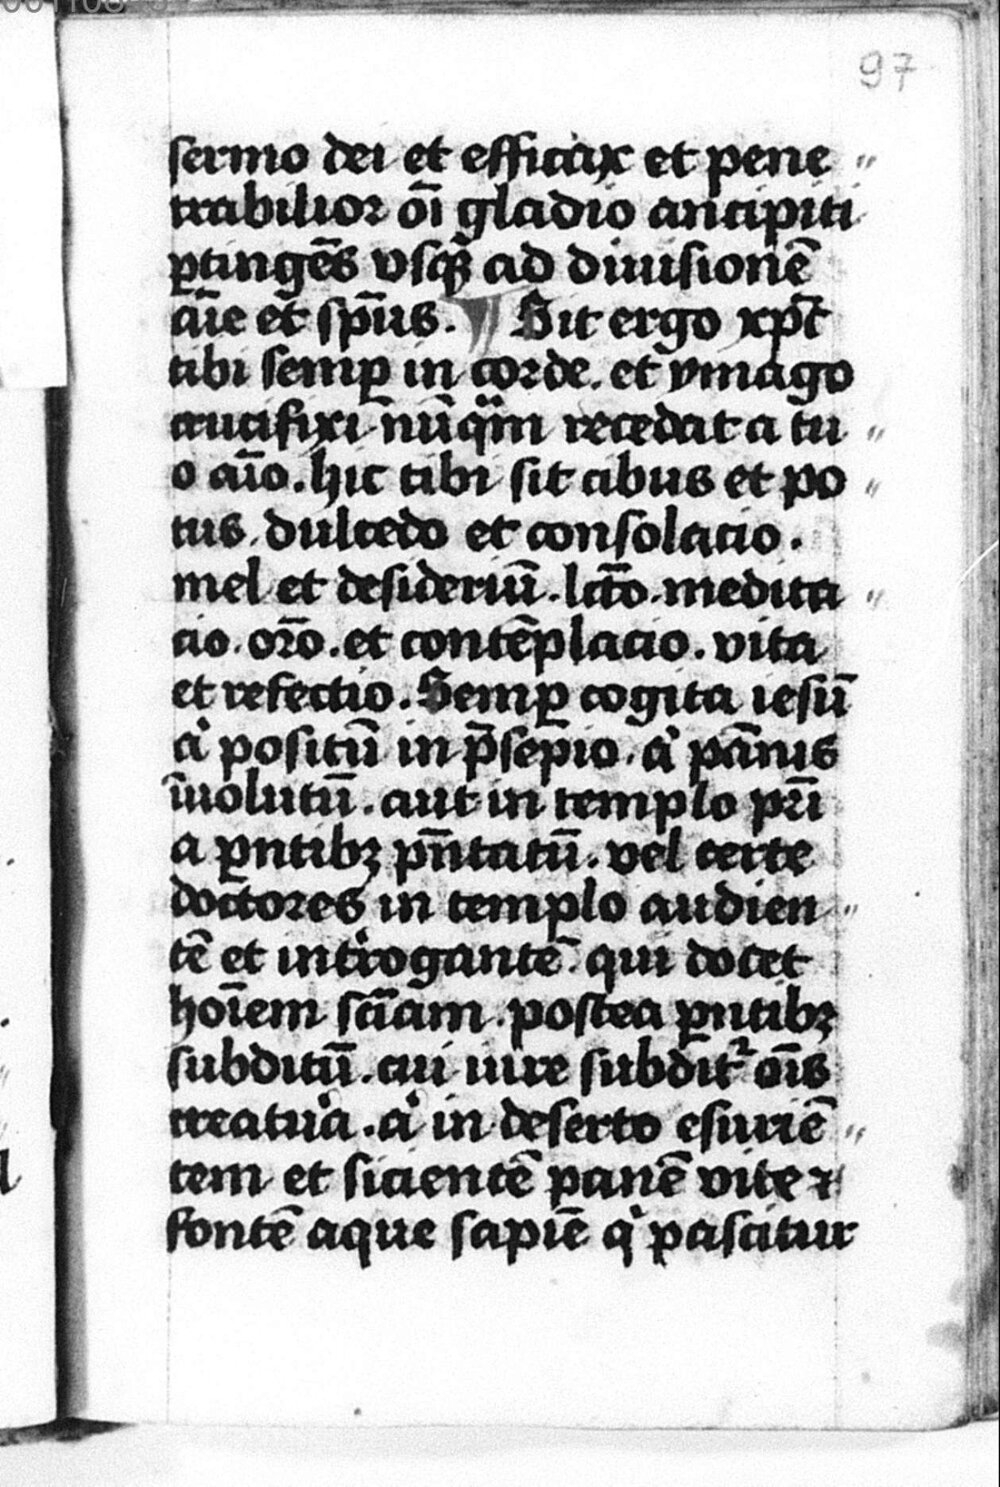 97
sermo dei et efficax et pene〃
trabilior oı̄ gladio ancipiti
ꝑtingēs vsqꝫ ad diuisionē
aīe et sp̄us. ¶ Sit ergo xp̄c
tibi semꝑ in corde. et ymago
crucifixi nūqᷓm recedat a tu〃
o aīo. hic tibi sit cibus et po〃
tus. dulcedo et consolacio.
mel et desideriū. lc̄to. medita〃
cio. or̄o. et contēplacio. vita
et refectio. Semꝑ cogita iesū
aͥ positū in p̄sepio. aͥ pānis
īuolutū. aut in templo pr̄i
a ꝑntibꝫ pn̄tatū. vel certe
doctores in templo audien〃
tē et introgantē qui docet
hoīem sc̄iam. postea ꝑntibꝫ
subditū. cui iure subdit᷑ oīs
creatura. aͥ in deserto esuriē〃
tem et sicientē panē vite ⁊
fontē aque sapiē qͥ pascitur